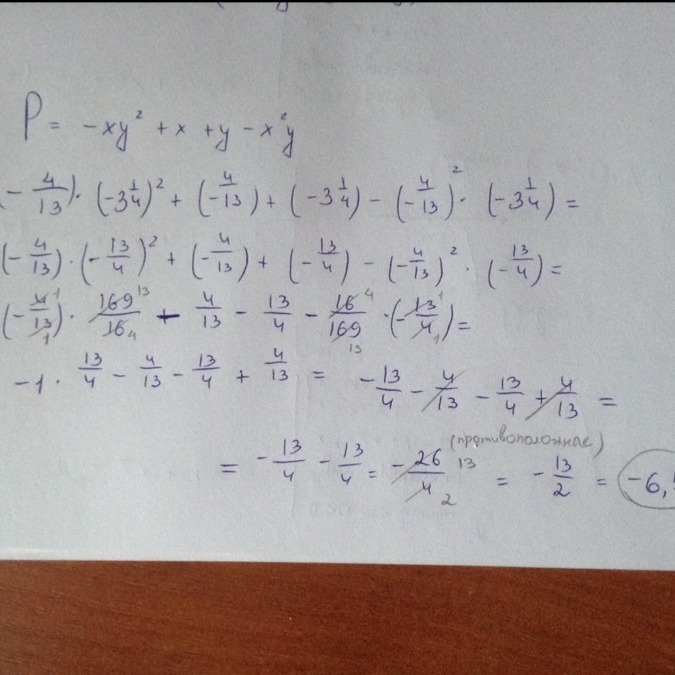 P = -xy² + x + y - x²y
(-4/13)·(-3 1/4)² + (-4/13) + (-3 1/4) - (-4/13)²·(-3 1/4) =
(-4/13)·(-13/4)² + (-4/13) + (-13/4) - (-4/13)²·(-13/4) =
(-4/13)·169/16 - 4/13 - 13/4 - 16/169·(-13/4) =
-1·13/4 - 4/13 - 13/4 + 4/13 = -13/4 - 4/13 - 13/4 + 4/13 =
(противоположные)
= -13/4 - 13/4 = -26/4 = -13/2 = -6,